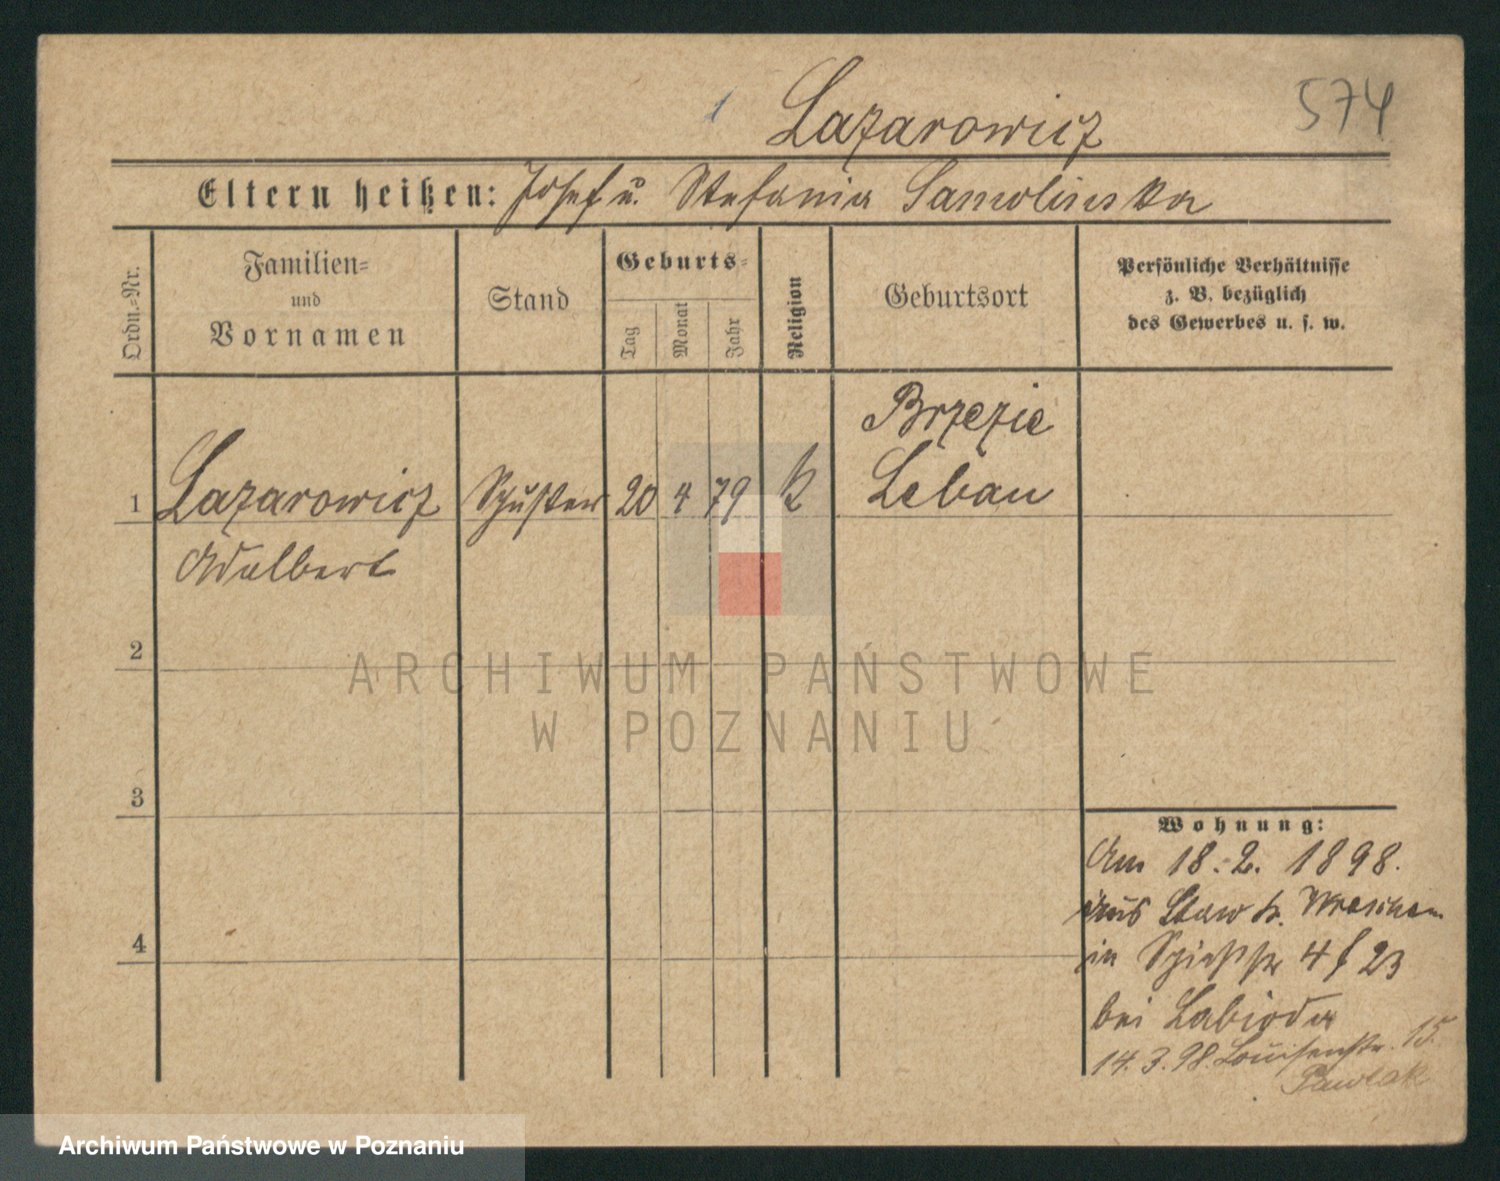 1 Lazarowicz 574
Eltern heißen: Josef u. Stefania Samolinska
Ordn.-Nr.
Familien-
und
Vornamen
Stand
Geburts-
Tag
Monat
Jahr
Religion
Geburtsort
Persönliche Verhältnisse
z. B. bezüglich
des Gewerbes u. s. w.
Brzezie
1 Lazarowicz Schuster 20 4 79 k Lebau
Adalbert
2
ARCHIWUM PAŃSTWOWE
W POZNANIU
3
Wohnung:
Am 18.2.1898.
aus Staw k. Wreschen
in 4 23
4
bei Labioda
14.3.98. Louisenstr. 15.
Pawlak
Archiwum Państwowe w Poznaniu